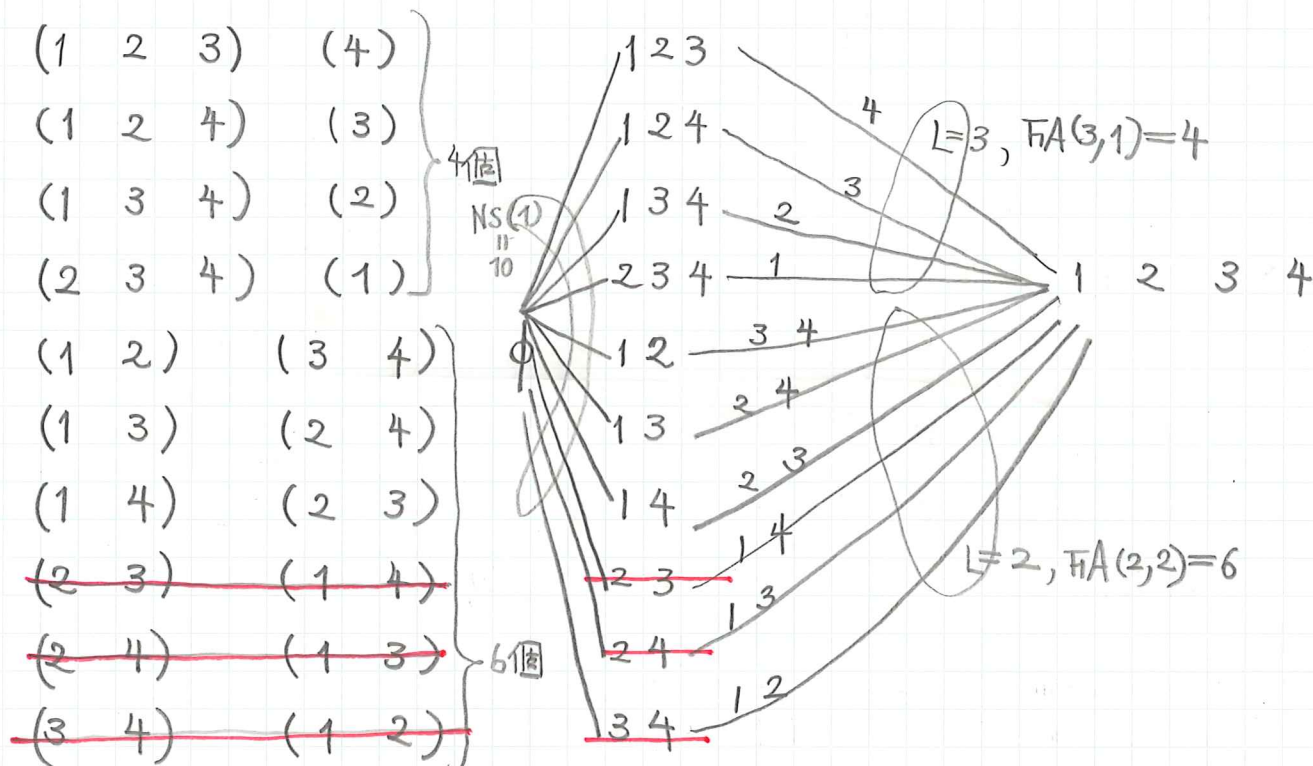 (1 2 3) (4)
(1 2 4) (3)
(1 3 4) (2)
(2 3 4) (1)
4個
(1 2) (3 4)
(1 3) (2 4)
(1 4) (2 3)
(2 3) (1 4)
(2 4) (1 3)
(3 4) (1 2)
6個
NS(1)
=
10
φ
1 2 3
1 2 4
1 3 4
2 3 4
1 2
1 3
1 4
2 3
2 4
3 4
4
3
2
1
3 4
2 4
2 3
1 4
1 3
1 2
L=3, A(3,1)=4
1 2 3 4
L=2, A(2,2)=6